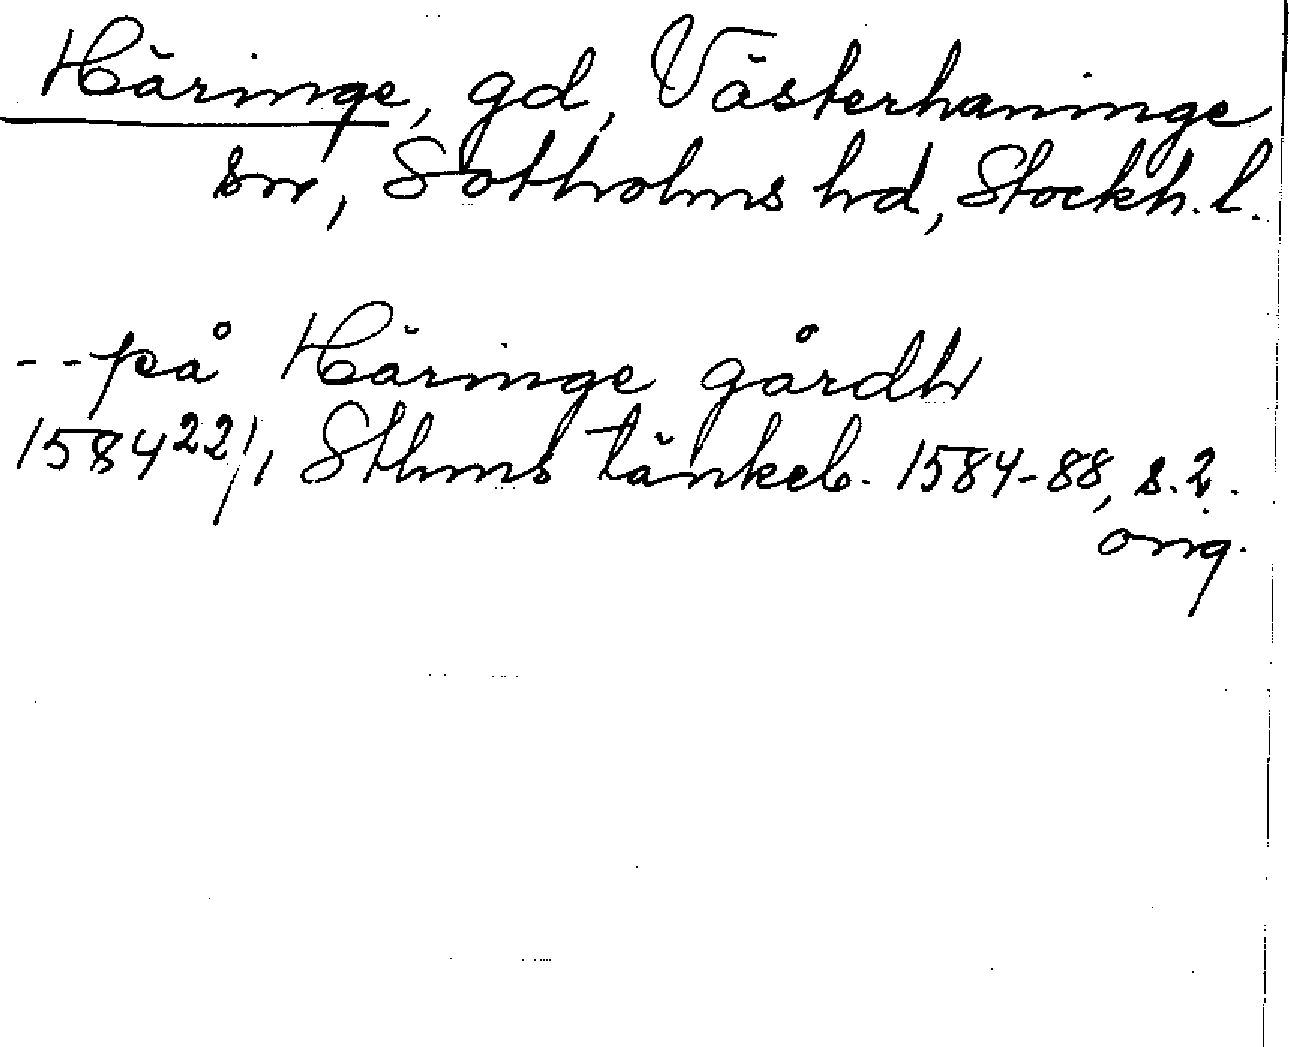 Häringe, gd, Västerhaninge
sn, Sotholms hd, Stockh. l.
- - på Häringe gårdh
1584 22/1, Sthms tänkeb. 1584-88, s. 2.
orig.